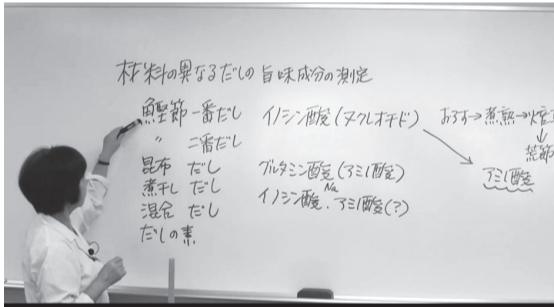 材料の異なるだしの旨味成分の測定
鰹節 一番だし イノシン酸(ヌクレオチド)
〃 二番だし
昆布 だし グルタミン酸(アミノ酸)
煮干し だし イノシン酸Na、アミノ酸(?)
混合 だし
だしの素
おろす→煮熟→焙
↓
荒節
アミノ酸